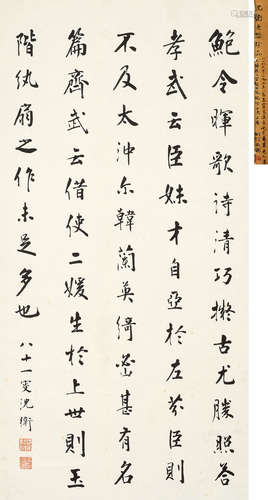 鮑令暉歌詩清巧擬古尤勝照答
孝武云臣妹才自亞於左芬臣則
不及太沖尔韓蘭英綺密甚有名
篇齊武云借使二媛生於上世則玉
階紈扇之作未足多也 八十一叟沈衛